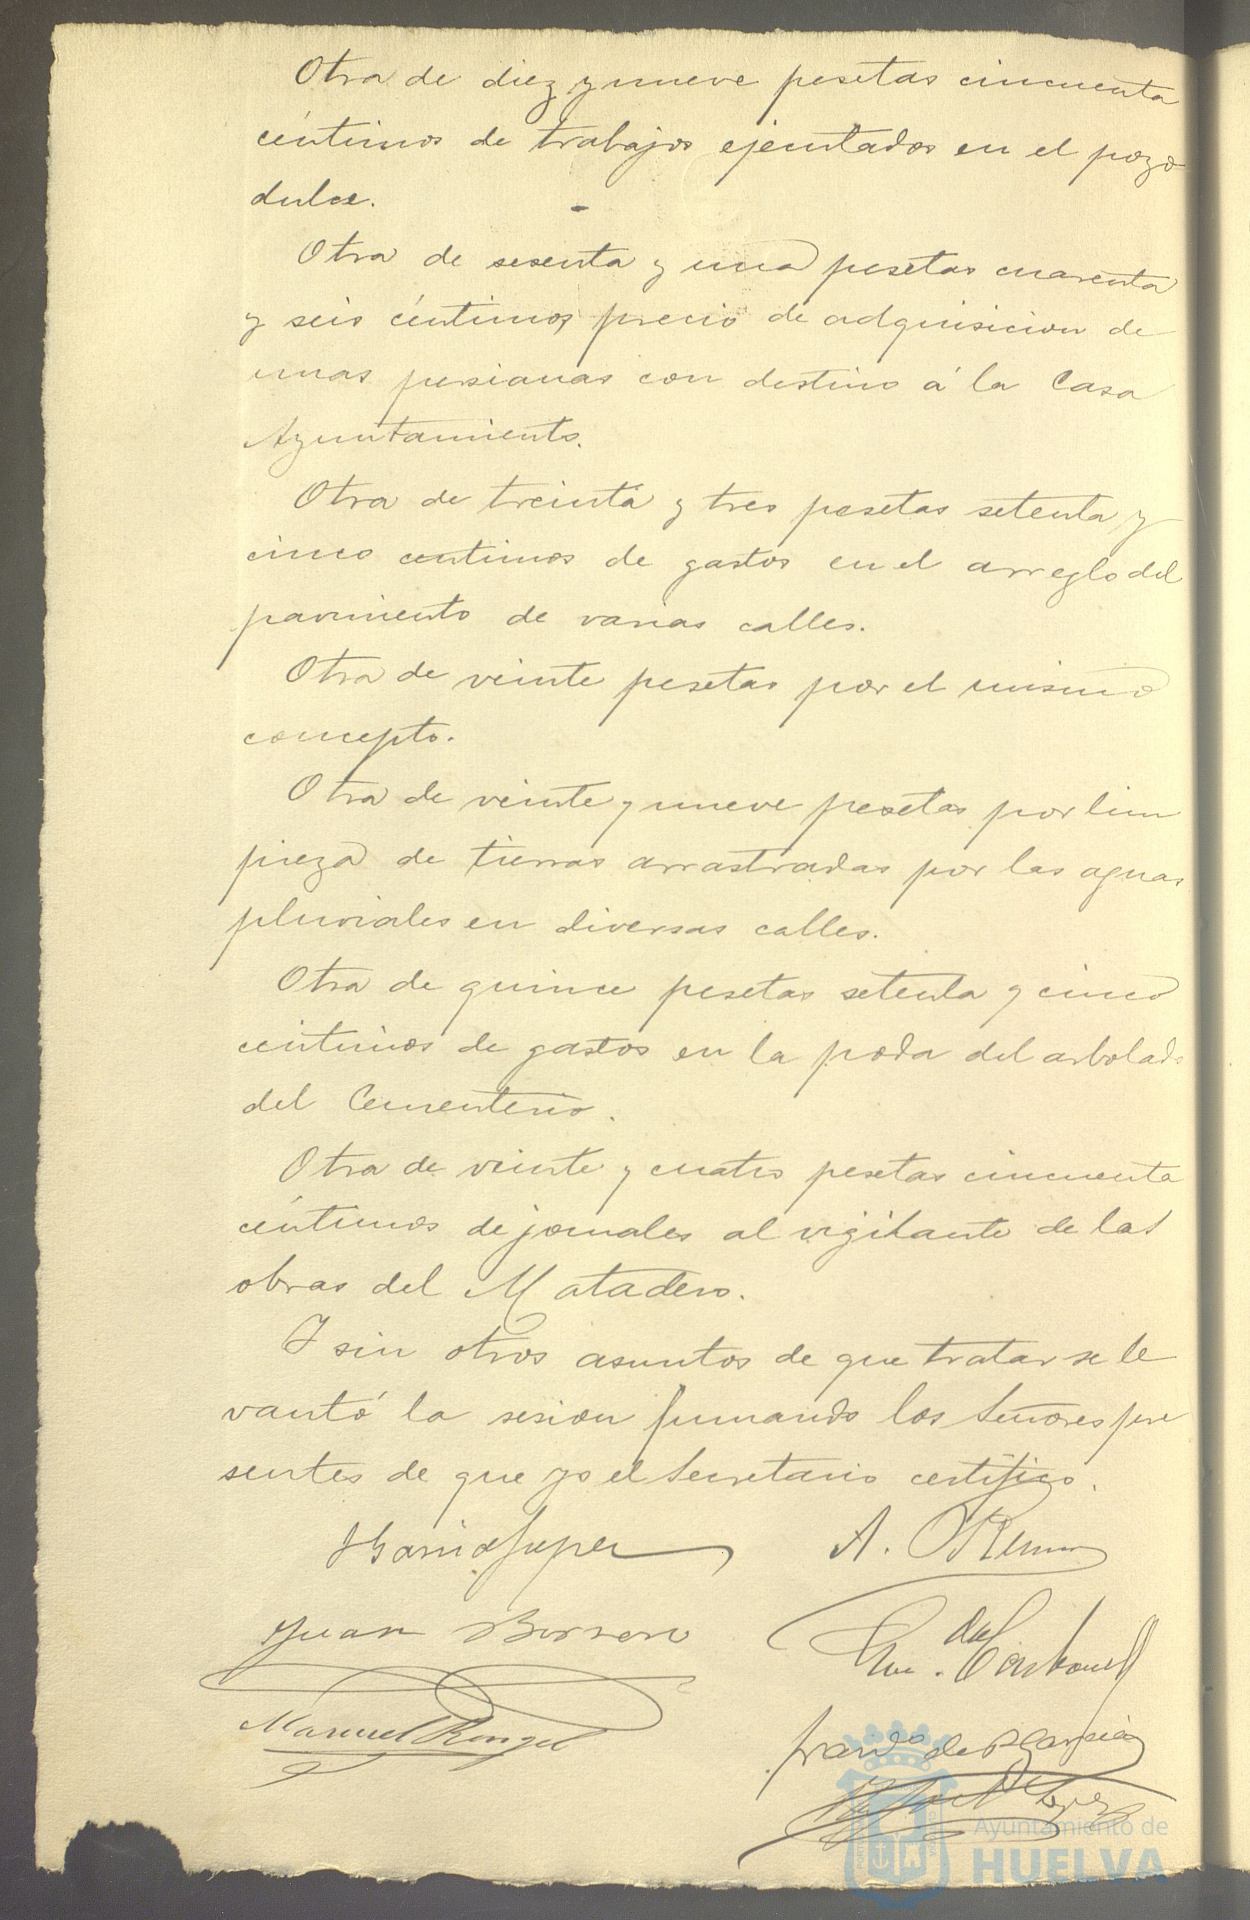 Otra de diez y nueve pesetas cincuenta
céntimos de trabajos ejecutados en el pozo
dulce.
Otra de sesenta y una pesetas cuarenta
y seis céntimos precio de adquisicion de
unas persianas con destino á la Casa
Ayuntamiento.
Otra de treinta y tres pesetas setenta y
cinco centimos de gastos en el arreglo del
pavimento de varias calles.
Otra de veinte pesetas por el mismo
concepto.
Otra de veinte y nueve pesetas por lim
pieza de tierras arrastradas por las aguas
pluviales en diversas calles.
Otra de quince pesetas setenta y cinco
centimos de gastos en la poda del arbolado
del Cementerio.
Otra de veinte y cuatro pesetas cincuenta
céntimos de jornales al vigilante de las
obras del Matadero.
Y sin otros asuntos de que tratar se le
vantó la sesion firmando los Señores pre
sentes de que yo el Secretario certifico.
A.
Juan Borrero
Carbonell
Manuel Rengel
de P. Garcia
Ayuntamiento de
HUELVA